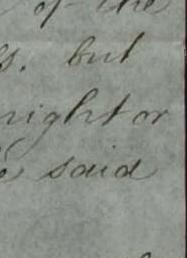 of the
s. but
night or
e said